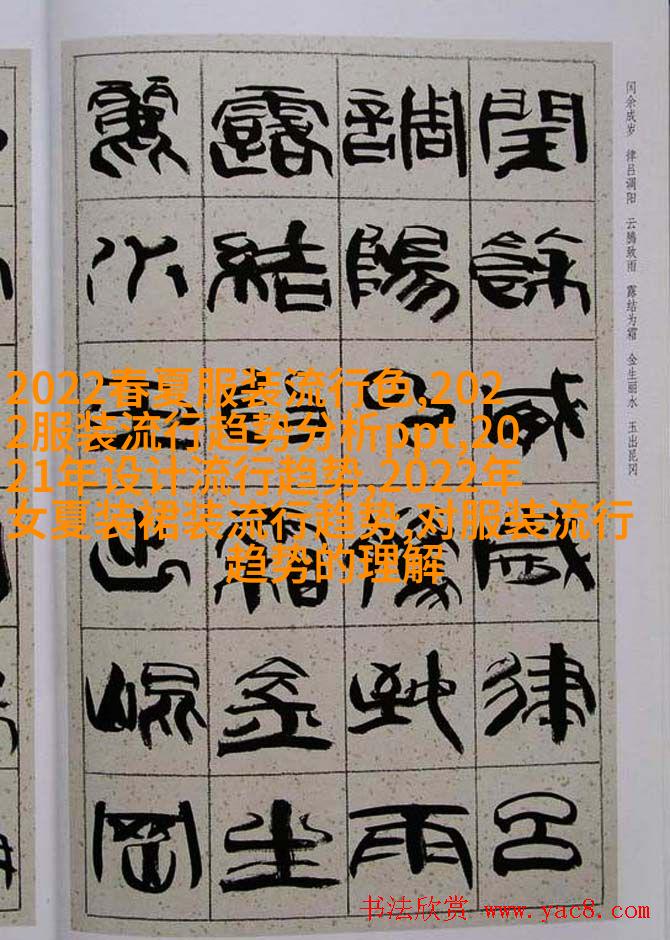 闰余成岁 律吕调阳 云腾致雨 露结为霜 金生丽水 玉出昆冈
閏餘成歲律呂
調陽云騰致雨
露結為霜金生
麗水玉出崐岡
2022春夏服装流行色,202
2服装流行趋势分析ppt,20
21年设计流行趋势,2022年
女夏装裙装流行趋势,对服装流行
趋势的理解
书法欣赏 www.yac8.com